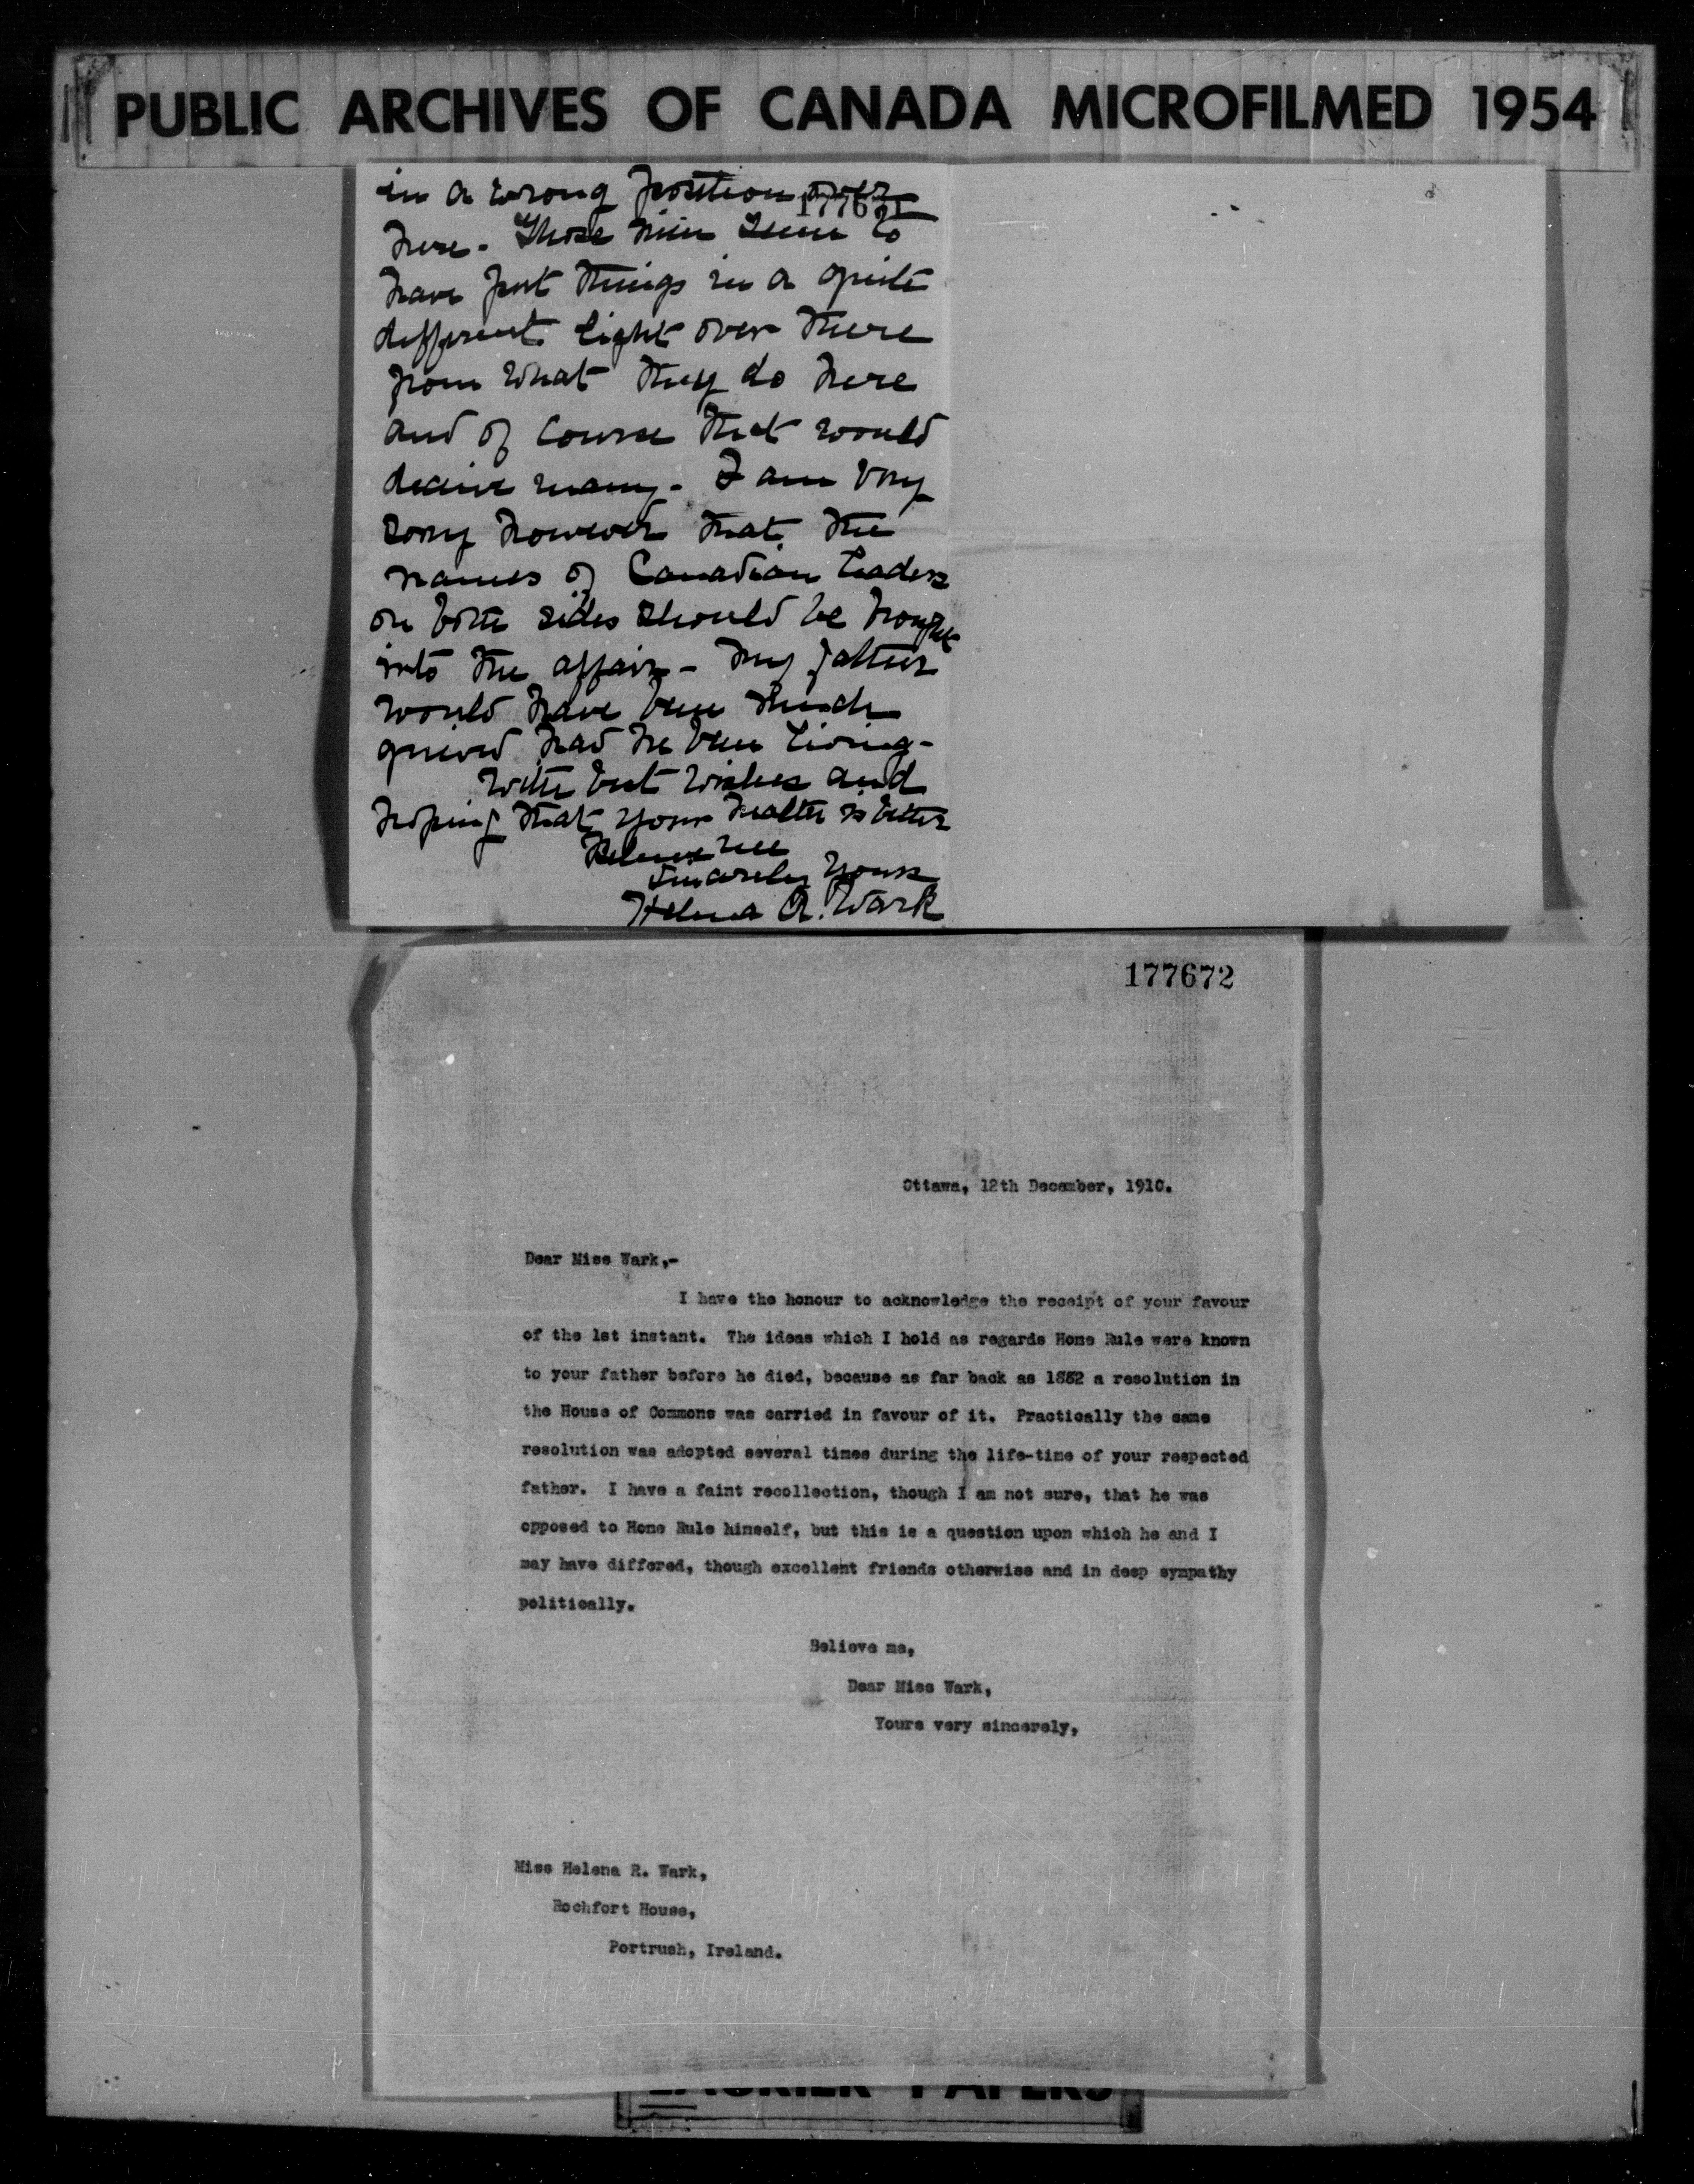 PUBLIC ARCHIVES OF CANADA MICROFILMED 1954
in a wrong position over
177671
here - Those men seem to
have put things in a quite
different light over there
from what they do here
and of course that would
deceive many - I am very
sorry however that the
names of Canadian leaders
on both sides should be brought
into the affair - my father
would have been much
grieved had he been living -
With best wishes and
hoping that your health is better
Believe me
Sincerely yours
Helena R. Wark
177672
Ottawa, 12th December, 1910.
Dear Miss Wark,-
I have the honour to acknowledge the receipt of your favour
of the 1st instant. The ideas which I hold as regards Home Rule were known
to your father before he died, because as far back as 1882 a resolution in
the House of Commons was carried in favour of it. Practically the same
resolution was adopted several times during the life-time of your respected
father. I have a faint recollection, though I am not sure, that he was
opposed to Home Rule himself, but this is a question upon which he and I
may have differed, though excellent friends otherwise and in deep sympathy
politically.
Believe me,
Dear Miss Wark,
Yours very sincerely,
Miss Helena R. Wark,
Rochfort House,
Portrush, Ireland.
LAURIER PAPERS